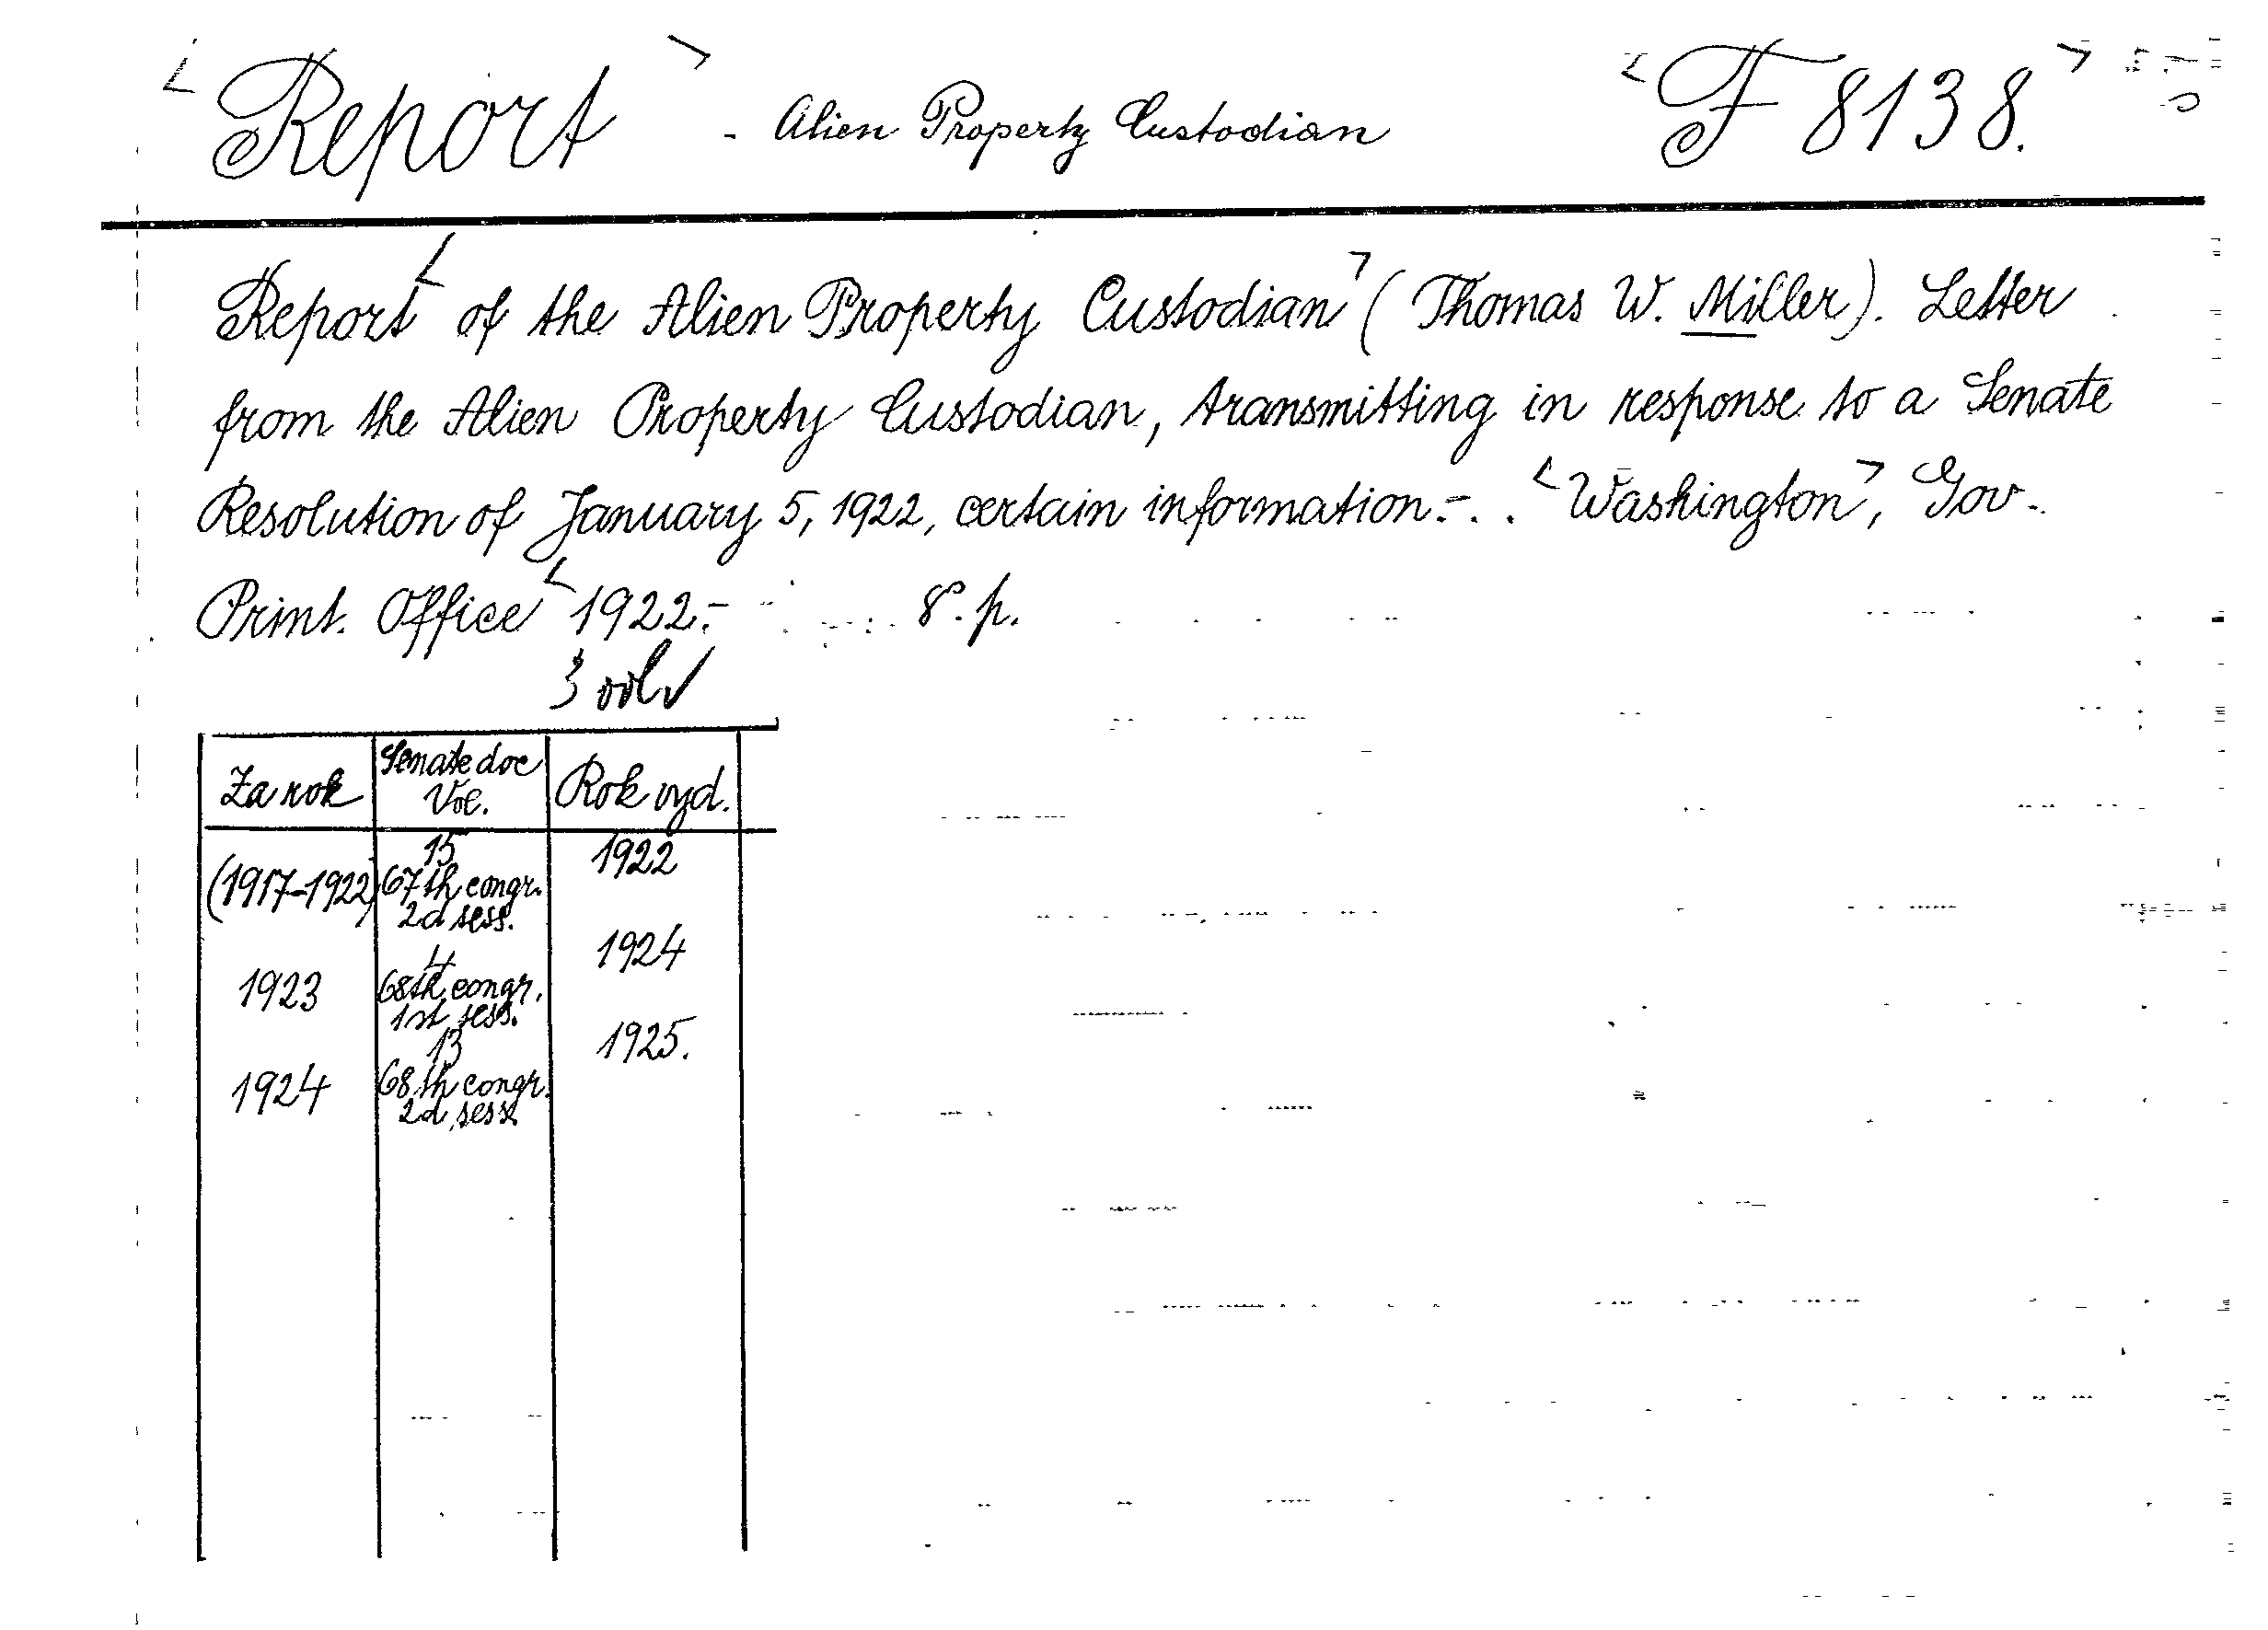 Report - Alien Property Custodian F 8138.
Report of the Alien Property Custodian (Thomas W. Miller). Letter
from the Alien Property Custodian, transmitting in response to a Senate
Resolution of January 5, 1922, certain information.-.. Washington, Gov.
Print. Office 1922.- 8°. p.
3 vol
Za rok Senate doc Vol. Rok vyd.
(1917-1922) 15 67th congr. 2d sess. 1922
1923 4 68th congr. 1st sess. 1924
1924 13 68th congr. 2d sess. 1925.